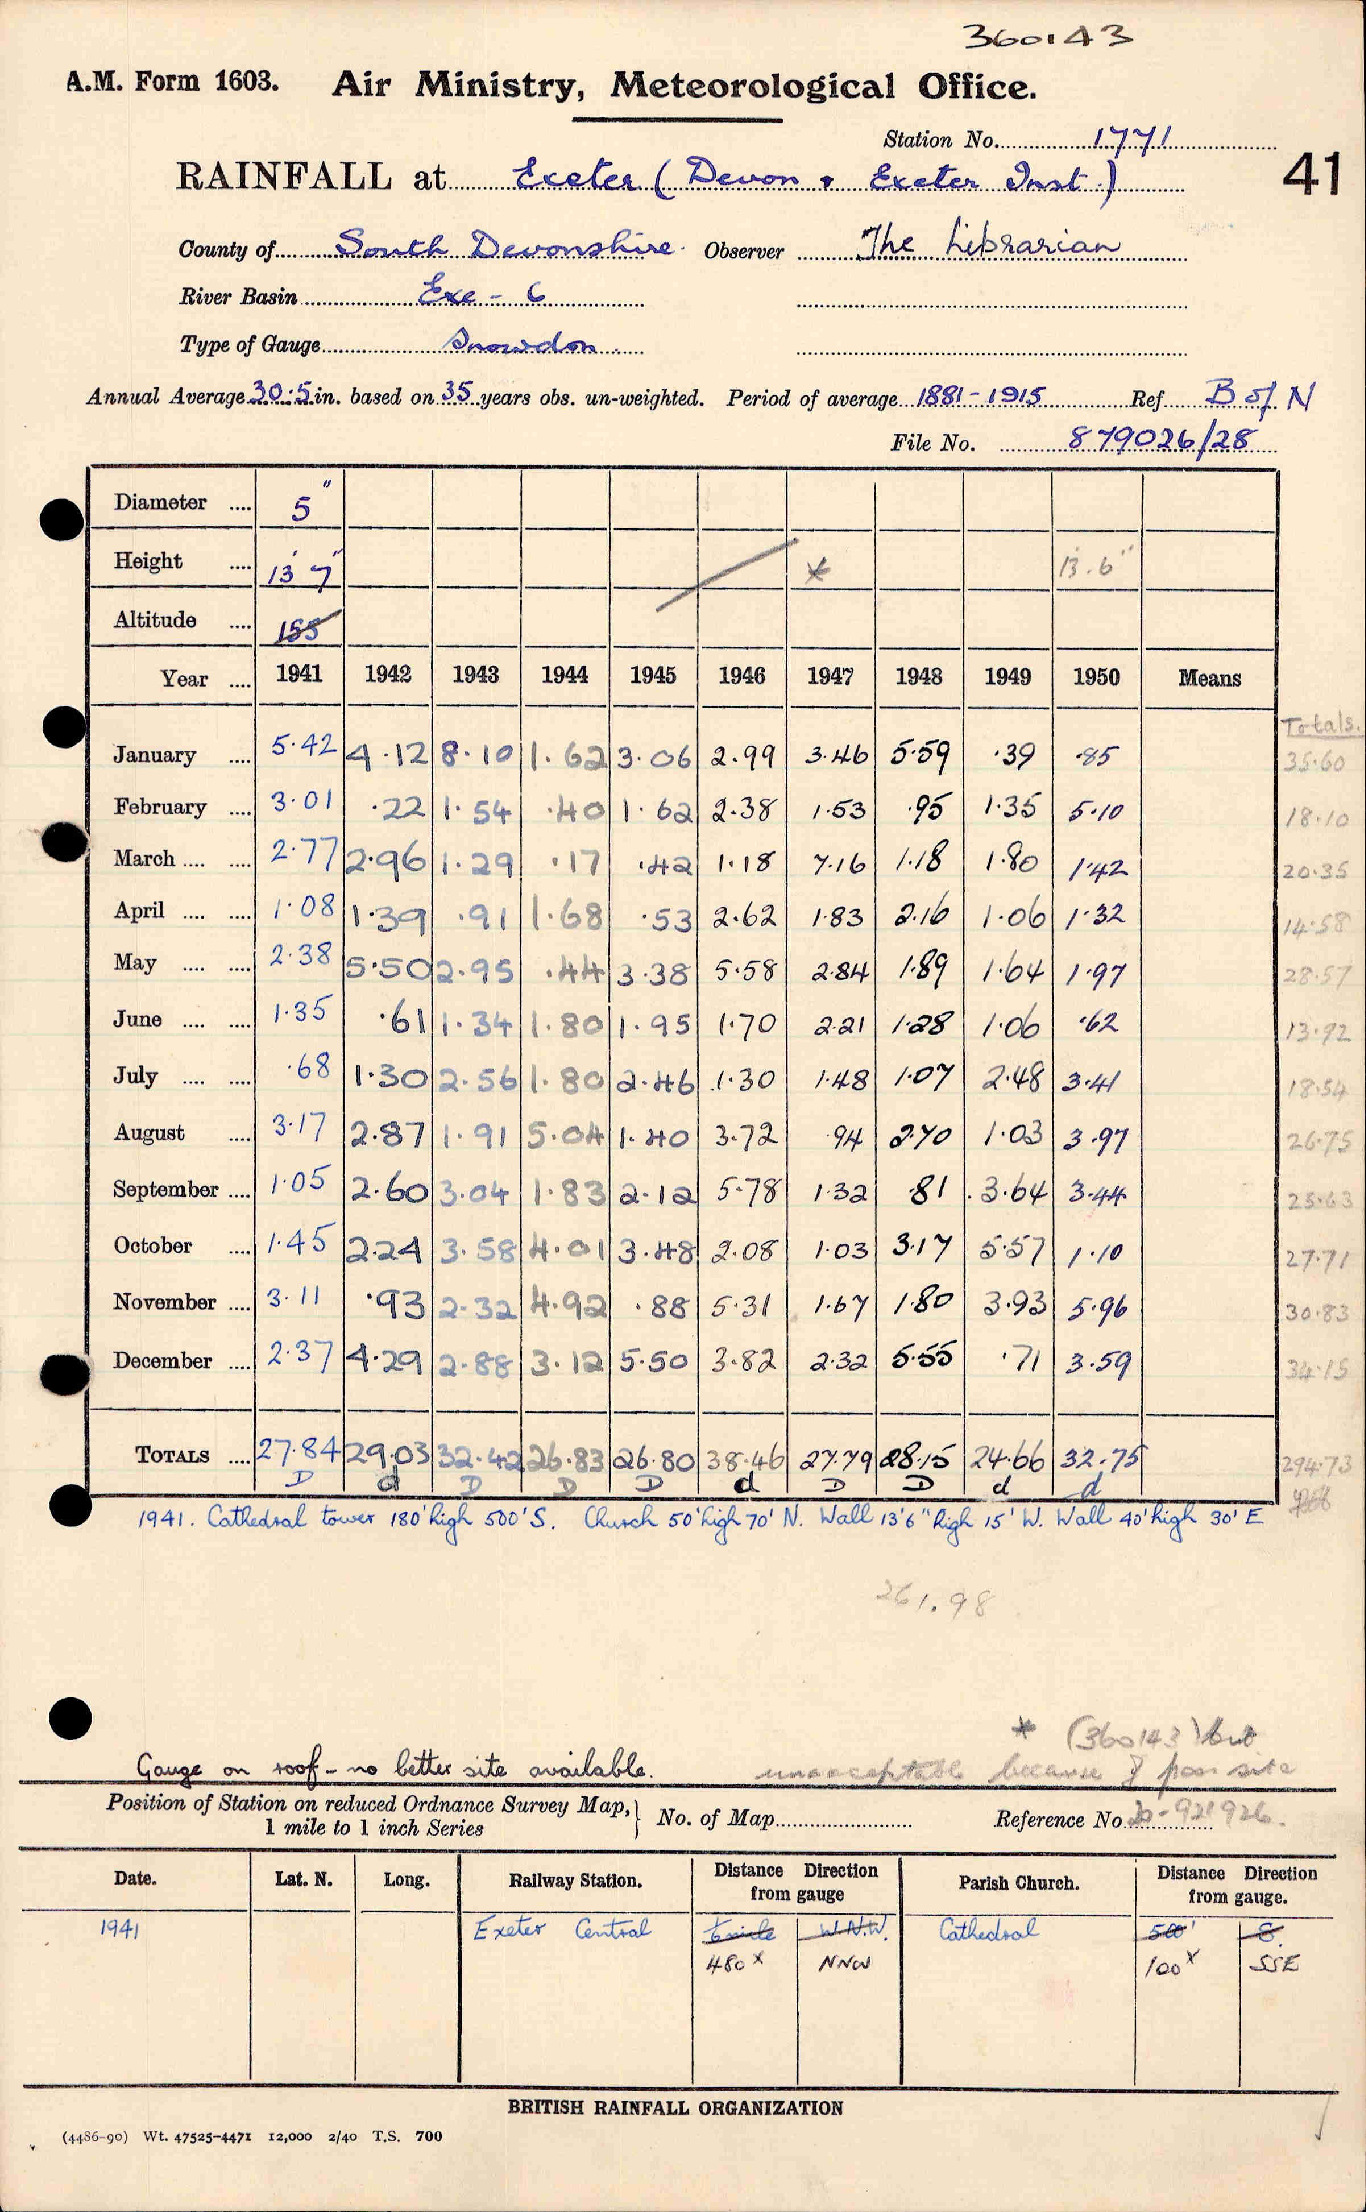 360143
A.M. Form 1603. Air Ministry, Meteorological Office.
Station No. 1771
41
RAINFALL at Exeter (Devon & Exeter Inst.)
County of South Devonshire. Observer The Librarian
River Basin Exe - 6
Type of Gauge Snowdon.
Annual Average 30.5 in. based on 35 years obs. un-weighted. Period of average 1881-1915 Ref B of N
File No. 879026/28
Diameter .... 5"
Height .... 13' 7" * 13'.6"
Altitude .... 155
Year .... 1941 1942 1943 1944 1945 1946 1947 1948 1949 1950 Means
Totals.
January .... 5.42 4.12 8.10 1.62 3.06 2.99 3.46 5.59 .39 .85 35.60
February .... 3.01 .22 1.54 .40 1.62 2.38 1.53 .95 1.35 5.10 18.10
March .... .... 2.77 2.96 1.29 .17 .42 1.18 7.16 1.18 1.80 1.42 20.35
April .... .... 1.08 1.39 .91 1.68 .53 2.62 1.83 2.16 1.06 1.32 14.58
May .... .... 2.38 5.50 2.95 .44 3.38 5.58 2.84 1.89 1.64 1.97 28.57
June .... .... 1.35 .61 1.34 1.80 1.95 1.70 2.21 1.28 1.06 .62 13.92
July .... .... .68 1.30 2.56 1.80 2.46 1.30 1.48 1.07 2.48 3.41 18.54
August .... 3.17 2.87 1.91 5.04 1.40 3.72 .94 2.70 1.03 3.97 26.75
September .... 1.05 2.60 3.04 1.83 2.12 5.78 1.32 .81 3.64 3.44 25.63
October .... 1.45 2.24 3.58 4.01 3.48 2.08 1.03 3.17 5.57 1.10 27.71
November .... 3.11 .93 2.32 4.92 .88 5.31 1.67 1.80 3.93 5.96 30.83
December .... 2.37 4.29 2.88 3.12 5.50 3.82 2.32 5.55 .71 3.59 34.15
TOTALS .... 27.84 29.03 32.42 26.83 26.80 38.46 27.79 28.15 24.66 32.75 294.73
D d D D D d D D d d
1941. Cathedral tower 180' high 500' S. Church 50' high 70' N. Wall 13'6" high 15' W. Wall 40' high 30' E
261.98
* (360143) but
Gauge on roof - no better site available. unacceptable because of poor site
Position of Station on reduced Ordnance Survey Map, 1 mile to 1 inch Series } No. of Map Reference No 20-921926.
Date. Lat. N. Long. Railway Station. Distance Direction from gauge Parish Church. Distance Direction from gauge.
1941 Exeter Central W.N.W. Cathedral 500' S.
480x NNW 100x SSE
BRITISH RAINFALL ORGANIZATION
(4486-90) Wt. 47525-4471 12,000 2/40 T.S. 700